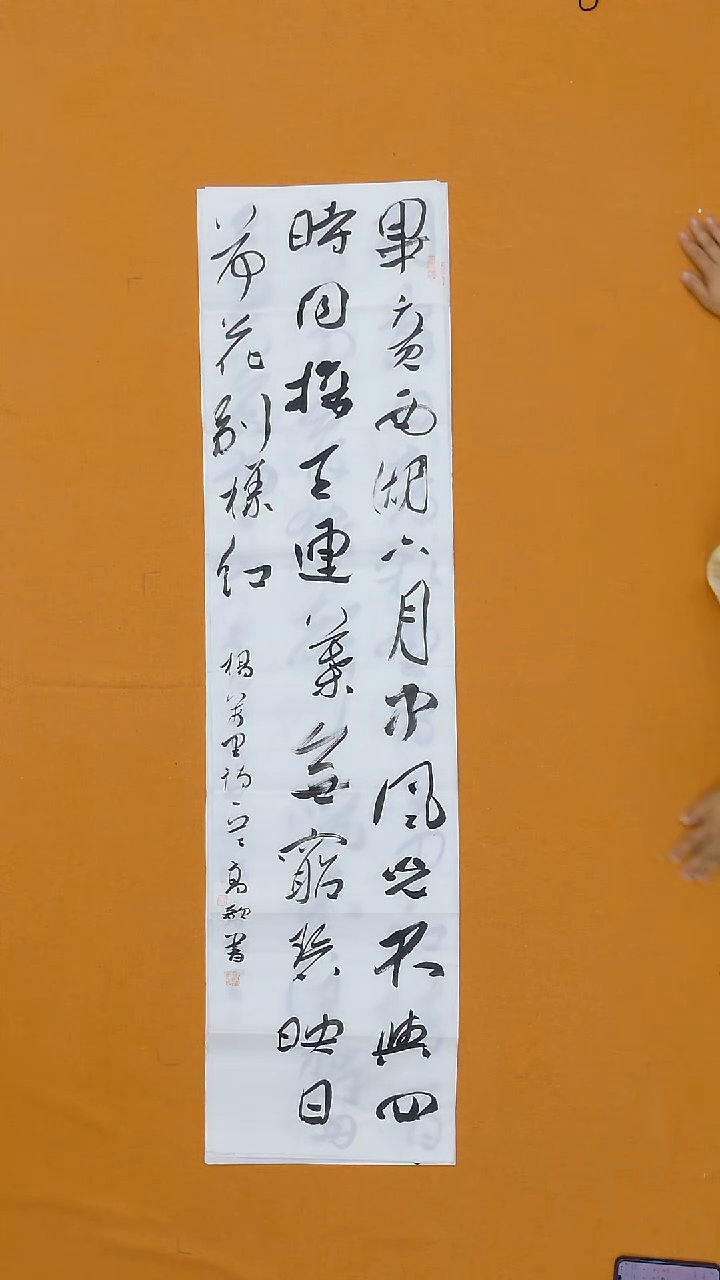 畢竟西湖六月中風光不與四
時同接天連葉無窮碧映日
荷花別樣紅
楊萬里詩一首 高 書